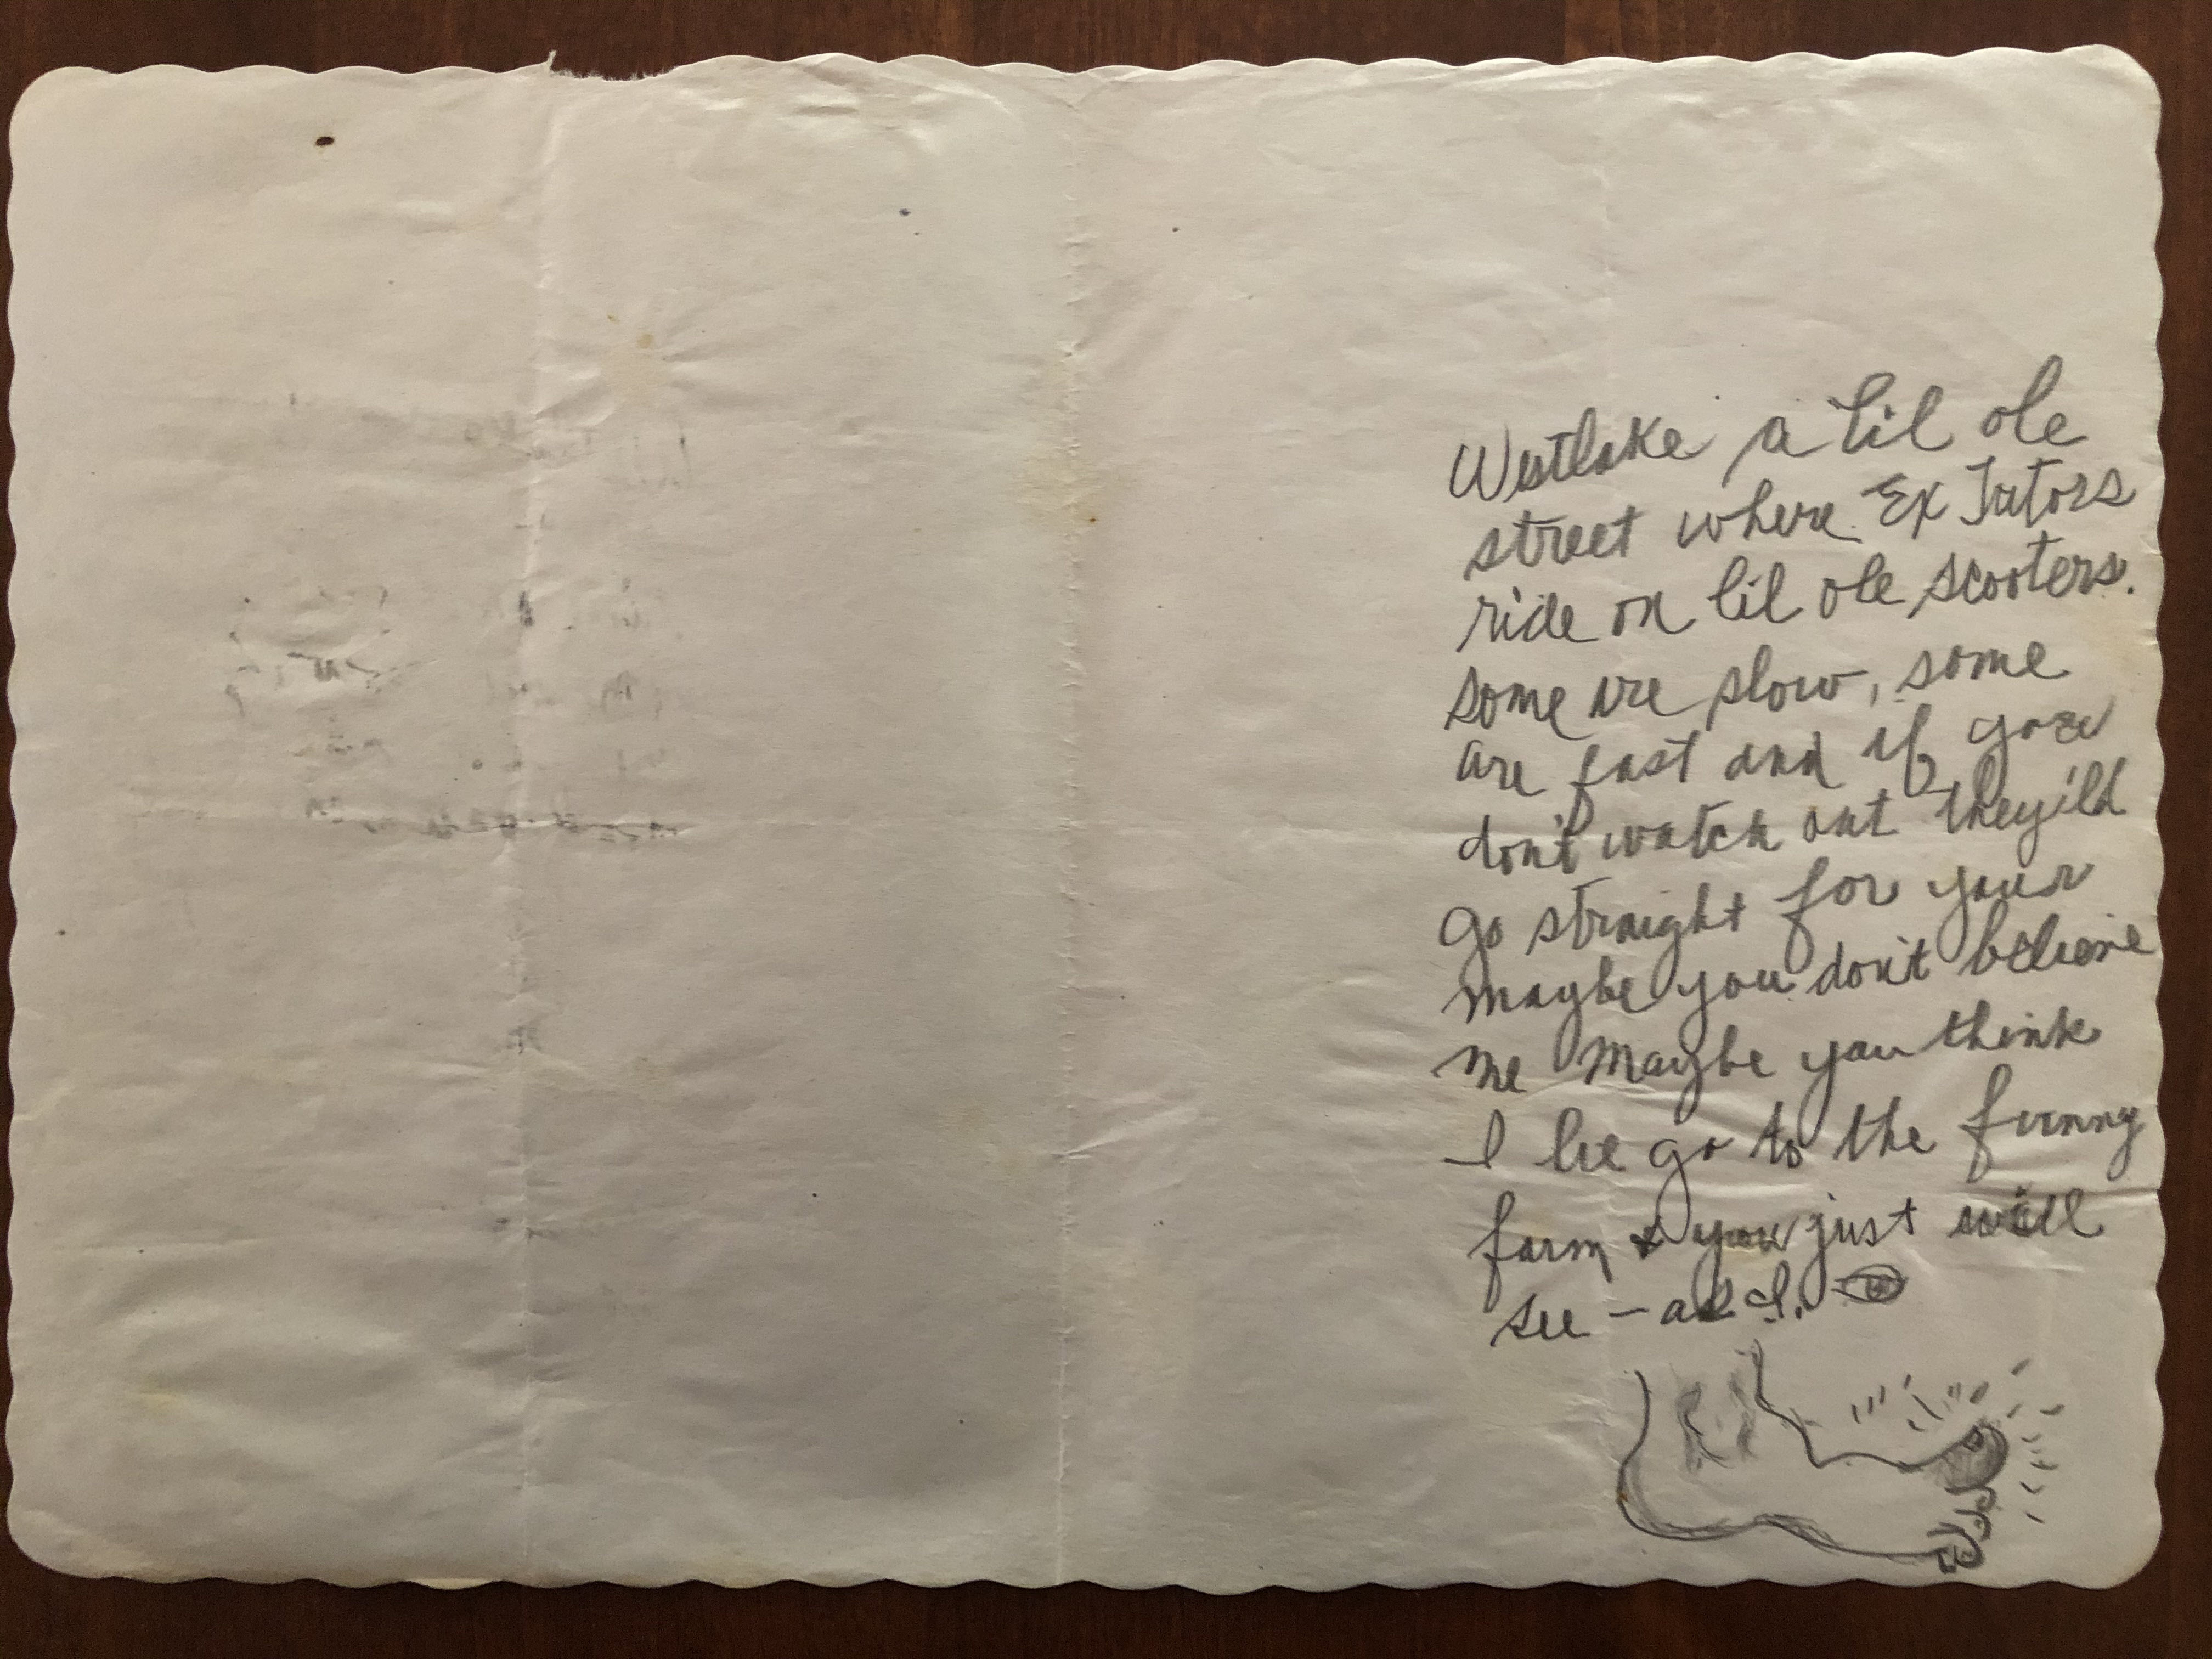 Westlake a lil ole
street where Ex Tutors
ride on lil ole scooters.
some are slow, some
are fast and if you
don't watch out they'ild
go straight for your
maybe you don't believe
me Maybe you think
I lie go to the funny
farm & you just will
see -